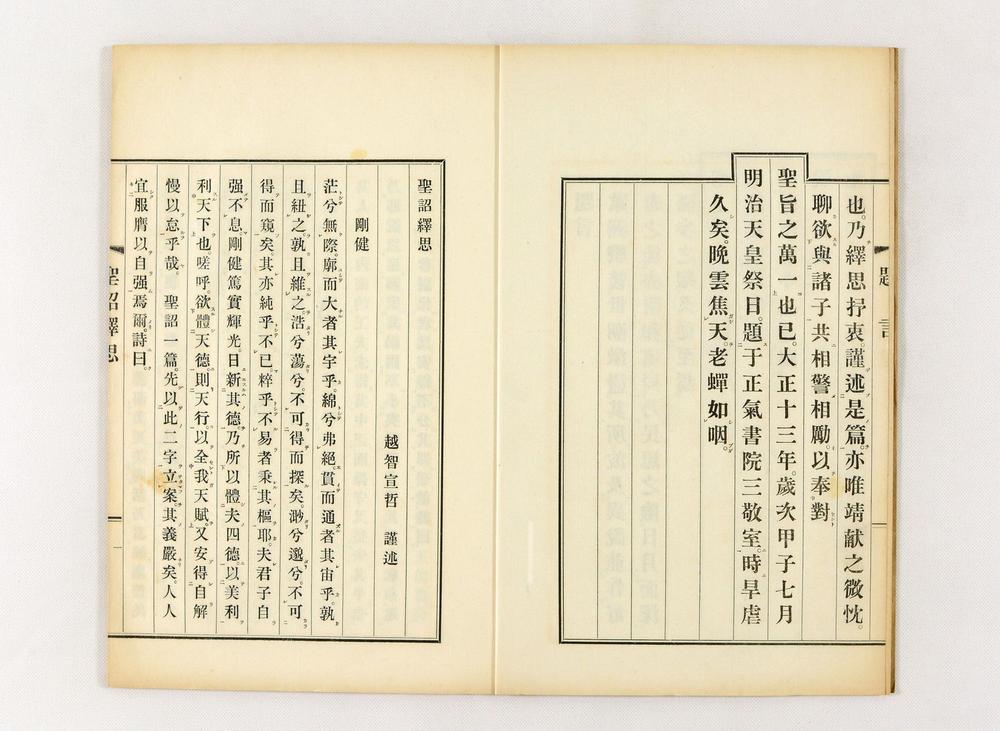 題言
也。乃繹思抒衷。謹述是篇。亦唯靖献之微忱。
聊欲與諸子共相警相勵。以奉對
聖旨之萬一也已。大正十三年。歲次甲子七月
明治天皇祭日。題于正氣書院三敬室。時旱虐
久矣。晚雲焦天。老蟬如咽。
聖詔繹思
越智宣哲 謹述
剛健
茫兮無際。廓而大者其宇乎。綿兮弗絕。貫而通者其宙乎。孰
且紐之。孰且維之。浩兮蕩兮。不可得而探矣。渺兮邈兮。不可
得而窺矣。其亦純乎不已。粹乎不易者秉其樞耶。夫君子自
强不息。剛健篤實輝光。日新其德。乃所以體夫四德。以美利
利天下也。嗟呼。欲體天德。則天行。以全我天賦。又安得自解
慢以怠乎哉。聖詔一篇。先以此二字立案。其義嚴矣。人人
宜服膺以自强焉爾。詩曰。
聖詔繹思
一